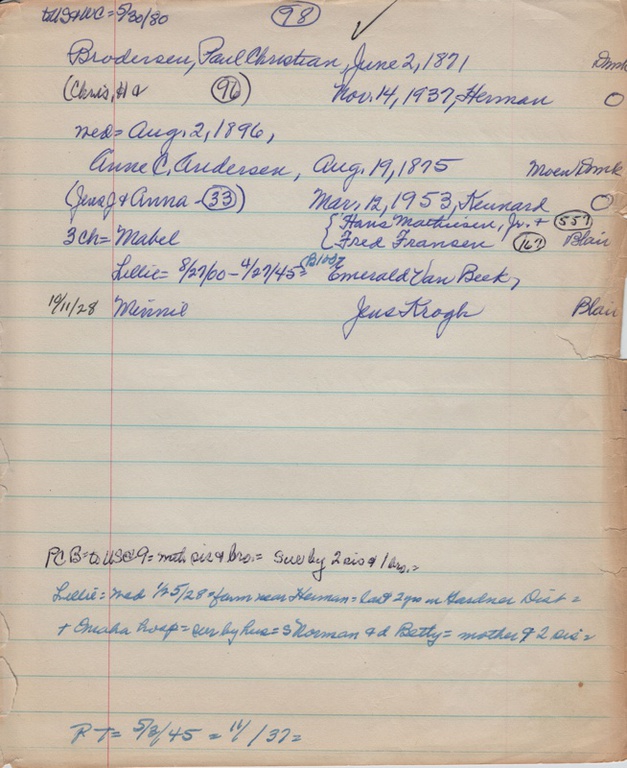 to US + WC = 5/30/80 (98)
Brodersen, Paul Christian, June 2, 1871 Dmk
(Chris, H & (96) Nov. 14, 1937, Herman O
med = Aug. 2, 1896,
Anne C. Andersen, Aug. 19, 1875 Moen Dmk
(Jens J + Anna - (33)) Mar. 12, 1953, Kennard O
{ Hans Mathiesen, Jr. + (557)
3 ch = Mabel { Fred Fransen (167) Blair
Lillie = 8/27/00 - 4/27/45 = Emerald Van Beek,
10/11/28 Minnie Jens Krogh Blair
PCB = to US @ 9 = moth, sis & bro. = sur by 2 sis & 1 bro. =
Lillie = med 1/25/28 = farm near Herman = last 2 yrs in Gardner Dist =
+ Omaha hosp = sur by hus = s Norman & d Betty = mother & 2 sis =
P T = 5/3/45 = 11/ /37 =